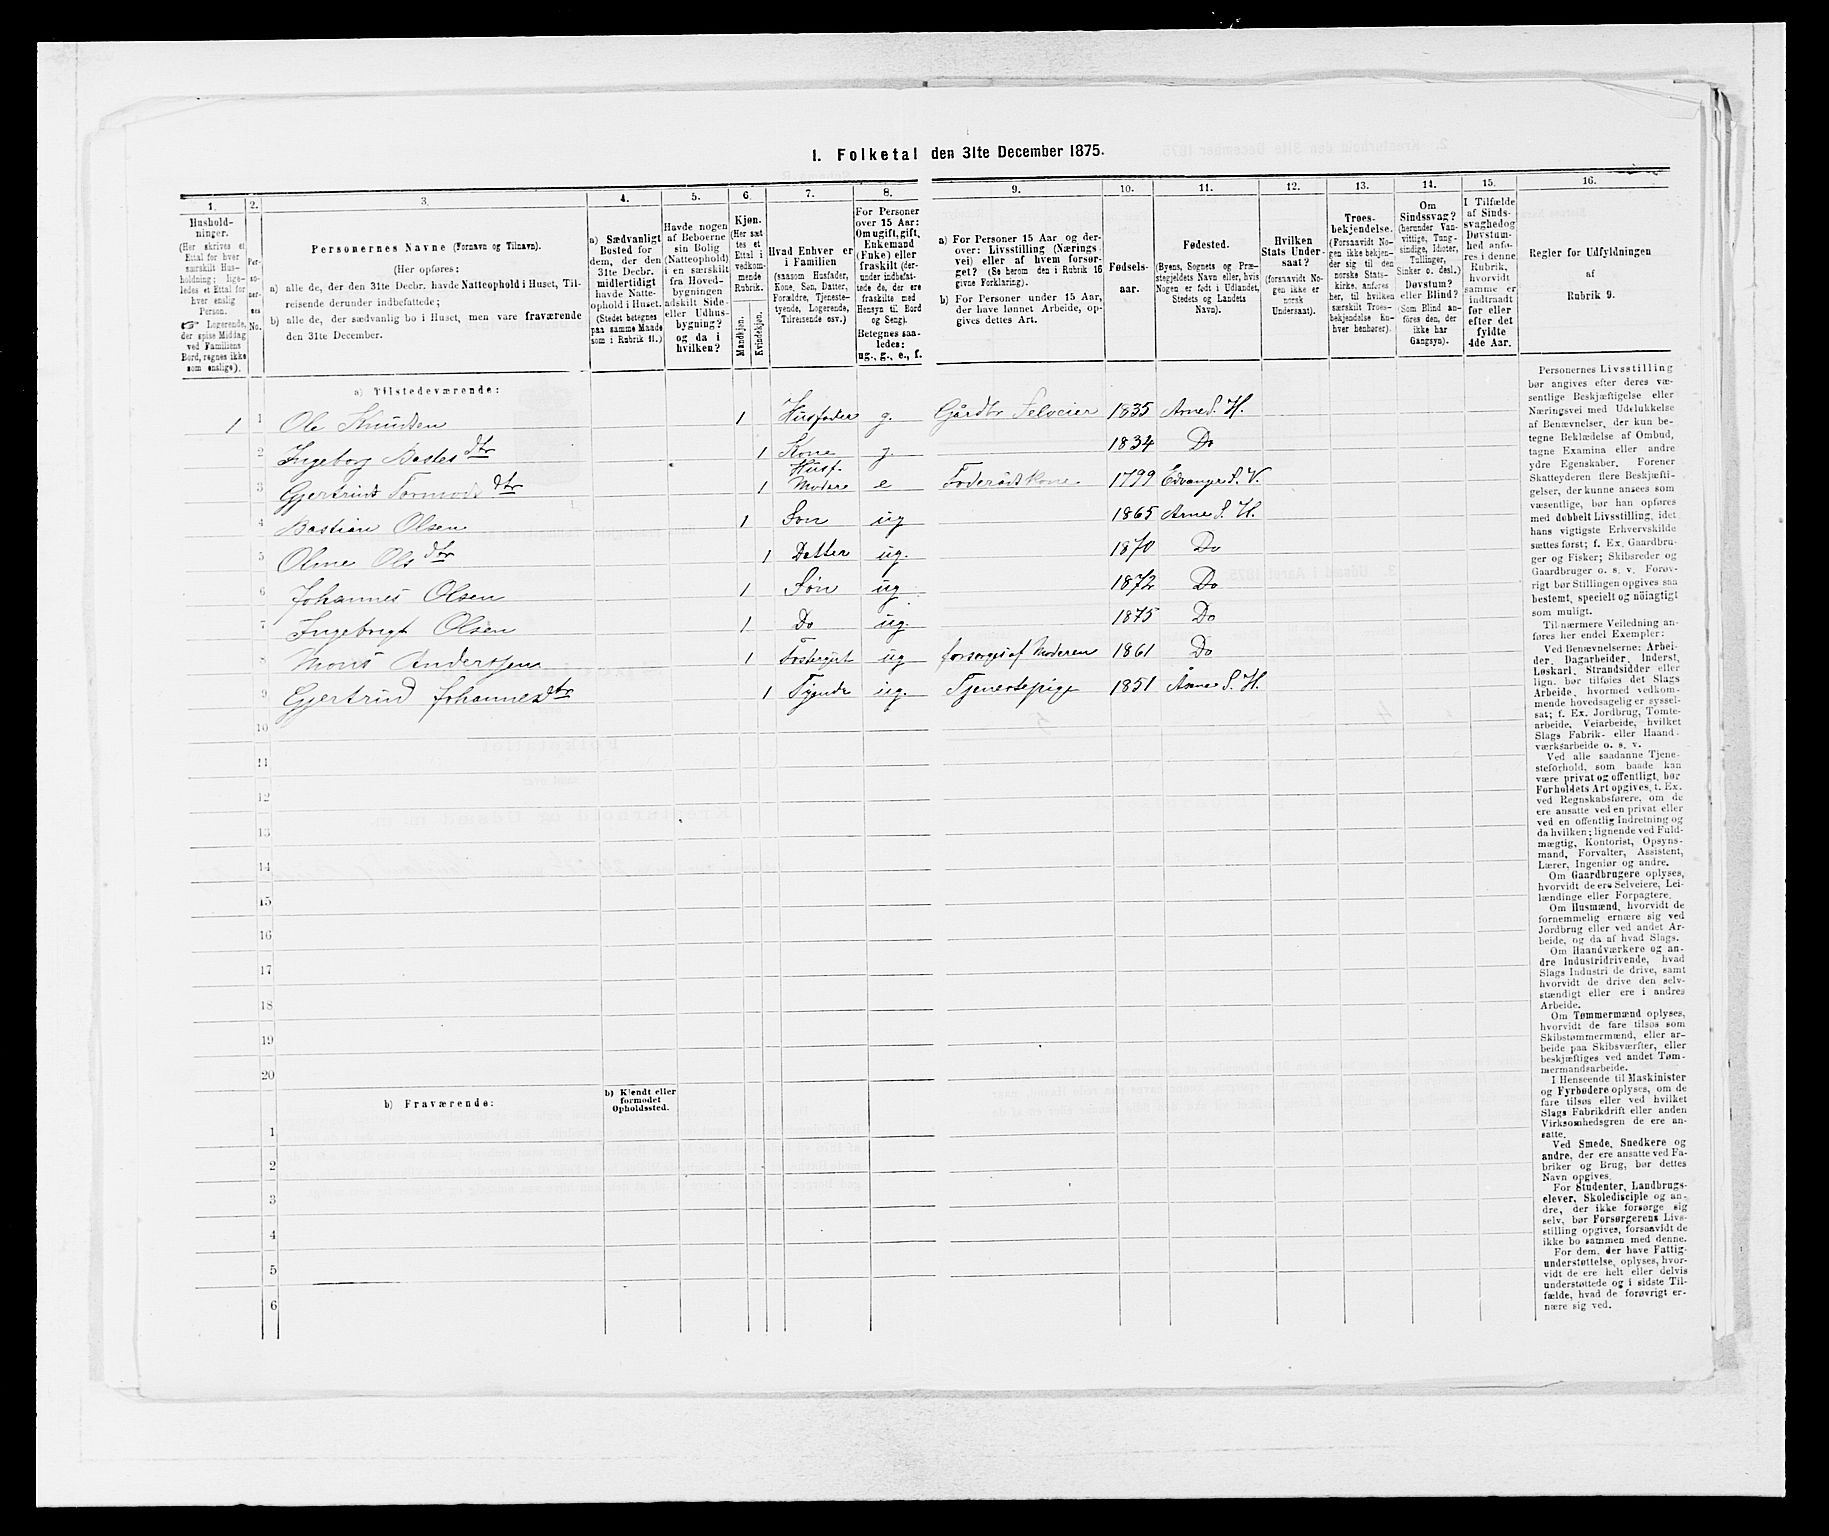 I. Folketal den 31te December 1875.
1. 2. 3. 4. 5. 6. 7. 8. 9. 10. 11. 12. 13. 14. 15. 16.
Hushold-
ninger.
(Her skrives et
Ettal for hver
særskilt Hus-
holdning; lige-
ledes et Ettal for
hver enslig
Person.
☞ Logerende,
der spise Middag
ved Familiens
Bord, regnes ikke
som enslige).
Per-
so-
ner-
nes
No.
Personernes Navne (Fornavn og Tilnavn).
(Her opføres:
a) alle de, der den 31te Decbr. havde Natteophold i Huset, Til-
reisende derunder indbefattede;
b) alle de, der sædvanlig bo i Huset, men vare fraværende
den 31te December.
a) Sædvanligt
Bosted for
dem, der den
31te Decbr.
midlertidigt
havde Natte-
ophold i Huset.
(Stedet betegnes
paa samme Maade
som i Rubrik 11.)
Havde nogen
af Beboerne
sin Bolig
(Natteophold)
i en særskilt
fra Hoved-
bygningen
adskilt Side-
eller Udhus-
bygning?
og da i
hvilken?
Kjøn.
(Her sæt
tes et
Ettal i
vedkom-
mende
Rubrik.
Mandkjøn.
Kvindekjøn.
Hvad Enhver er
i Familien
(saasom Husfader,
Kone, Søn, Datter,
Forældre, Tjeneste-
tyende, Logerende,
Tilreisende osv.)
For Personer
over 15 Aar:
Om ugift, gift,
Enkemand
(Enke) eller
fraskilt (der-
under indbefat-
tede de, der ere
fraskilte med
Hensyn til Bord
og Seng).
Betegnes saa-
ledes:
ug., g., e., f.
a) For Personer 15 Aar og der-
over: Livsstilling (Nærings
vei) eller af hvem forsør-
get? (Se herom den i Rubrik 16
givne Forklaring).
b) For Personer under 15 Aar,
der have lønnet Arbeide, op-
gives dettes Art.
Fødsels-
aar.
Fødested.
(Byens, Sognets og Præ-
stegjeldets Navn eller, hvis
Nogen er født i Udlandet,
Stedets og Landets
Navn).
Hvilken
Stats Under-
saat?
(forsaavidt No-
gen ikke er
norsk
Undersaat).
Troes-
bekjendelse.
(Forsaavidt No-
gen ikke bekjen-
der sig til den
norske Stats-
kirke, anføres
her, til hvilken
særskilt Troes-
bekjendelse En-
hver henhører).
Om
Sindssvag?
(herunder Van-
vittige, Tung-
sindige, Idioter,
Tullinger,
Sinker o. desl.)
Døvstum?
eller Blind?
(Som Blind an-
føres den, der
ikke har
Gangsyn).
I Tilfælde
af Sinds-
svaghed og
Døvstum-
hed anfø-
res i denne
Rubrik,
hvorvidt
samme er
indtraadt
før eller
efter det
fyldte
4de Aar.
Regler for Udfyldningen
af
Rubrik 9.
a) Tilstedeværende:
1 1 Ole Knudsen 1 Husfader g. Gårdbr Selveier 1835 Arne S. H.
2 Ingeborg Bastes dtr 1 Kone g. 1834 Do
3 Gjertrud Tormods dtr 1 Husf. Moder e Foderådskone. 1799 Edvanger S. V.
4 Bastian Olsen 1 Søn ug 1865 Arne S. H.
5 Oline Ols dtr 1 Datter ug. 1870 Do
6 Johannes Olsen 1 Søn ug. 1872 Do
7 Ingebrigt Olsen 1 Do ug. 1875 Do
8 Mons Anderssen 1 Fostergut ug forsørges af Moderen 1861 Do
9 Gjertrud Johannesdtr 1 Tyende ug. Tjenestepige 1851 Årne S. H.
10
11
12
13
14
15
16
17
18
19
20
b) Fraværende:
b) Kjendt eller
formodet
Opholdssted.
1
2
3
4
5
6
Personernes Livsstilling
bør angives efter deres væ-
sentlige Beskjæftigelse eller
Næringsvei med Udelukkelse
af Benævnelser, der kun be-
tegne Beklædelse af Ombud,
tagne Examina eller andre
ydre Egenskaber. Forener
Skatteyderen flere Beskjæfti-
gelser, der kunne ansees som
væsentlige, bør han opføres
med dobbelt Livsstilling, idet
hans vigtigste Erhvervskilde
sættes først; f. Ex. Gaardbru-
ger og Fisker; Skibsreder og
Gaardbruger o. s. v. Forøv-
rigt bør Stillingen opgives saa
bestemt, specielt og nøiagtigt
som muligt.
Til nærmere Veiledning an-
føres her endel Exempler:
Ved Benævnelserne: Arbei-
der, Dagarbeider, Inderst,
Løskarl, Strandsidder eller
lign. bør tilføies det Slags
Arbeide, hvormed vedkom-
mende hovedsagelig er syssel-
sat; f. Ex. Jordbrug, Tomte-
arbeide, Veiarbeide, hvilket
Slags Fabrik- eller Haand-
værksarbeide o. s. v.
Ved alle saadanne Tjene-
steforhold, som baade kan
være privat og offentligt, bør
Forholdets Art opgives, t. Ex.
ved Regnskabsførere, om de
ere ansatte ved en privat eller
ved en offentlig Indretning og
da hvilken; lignende ved Fuld-
mægtig, Kontorist, Opsyns-
mand, Forvalter, Assistent,
Lærer, Ingeniør og andre.
Om Gaardbrugere oplyses,
hvorvidt de ere Selveiere, Lei-
lændinge eller Forpagtere.
Om Husmænd, hvorvidt de
fornemmelig ernære sig ved
Jordbrug eller ved andet Ar-
beide, og da af hvad Slags.
Om Haandværkere og an-
dre Industridrivende, hvad
Slags Industri de drive, samt
hvorvidt de drive den selv-
stændigt eller ere i andres
Arbeide.
Om Tømmermænd oplyses,
hvorvidt de fare tilsøs som
Skibstømmermænd, eller ar-
beide paa Skibsværfter, eller
beskjæftiges ved andet Tøm-
mermandsarbeide.
I Henseende til Maskinister
og Fyrbødere oplyses, om de
fare tilsøs eller ved hvilket
Slags Fabrikdrift eller anden
Virksomhedsgren de ere an-
satte.
Ved Smede, Snedkere og
andre, der ere ansatte ved Fa-
briker og Brug, bør dettes
Navn opgives.
For Studenter, Landbrugs-
elever, Skoledisciple og an-
dre, der ikke forsørge sig
selv, bør Forsørgerens Livs-
stilling opgives, forsaavidt de
ikke bo sammen med denne.
For dem, der have Fattig-
understøttelse, oplyses, hvor-
vidt de ere helt eller delvis
understøttede og i sidste Til-
fælde, hvad de forøvrigt er-
nære sig ved.